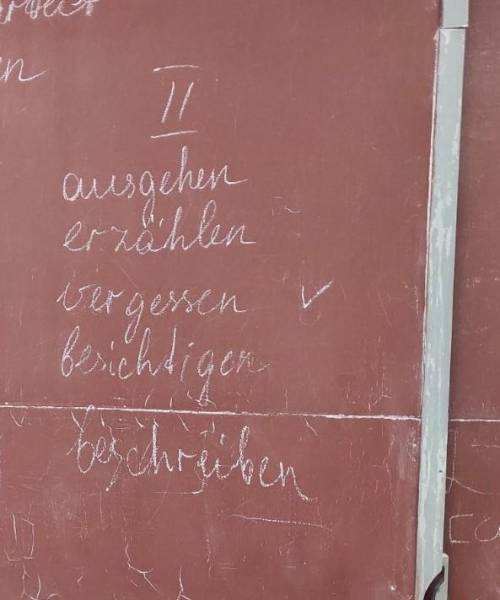 II
ausgehen
erzählen
vergessen ✓
besichtigen
beschreiben